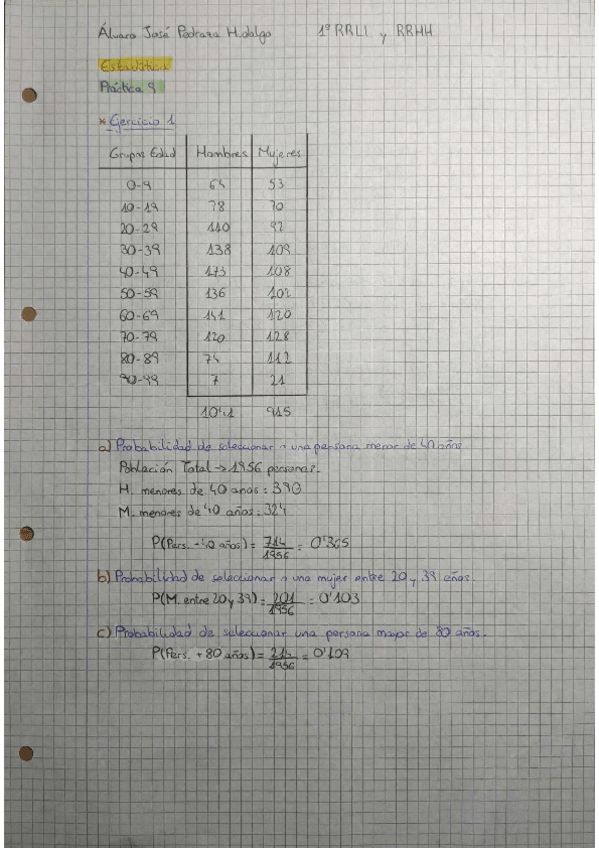 Álvaro José Pedraza Hidalgo 1º RRLL y RRHH
Estadística
Práctica 9
* Ejercicio 1
Grupos Edad Hombres Mujeres
0-9 64 53
10-19 78 70
20-29 110 92
30-39 138 109
40-49 173 108
50-59 136 102
60-69 141 120
70-79 120 128
80-89 74 112
90-99 7 21
1041 915
a) Probabilidad de seleccionar a una persona menor de 40 años
Población Total → 1956 personas.
H. menores de 40 años: 390
M. menores de 40 años: 324
P(Pers. -40 años) = 714/1956 = 0'365
b) Probabilidad de seleccionar a una mujer entre 20 y 39 años.
P(M. entre 20 y 39) = 201/1956 = 0'103
c) Probabilidad de seleccionar una persona mayor de 80 años.
P(Pers. +80 años) = 214/1956 = 0'109